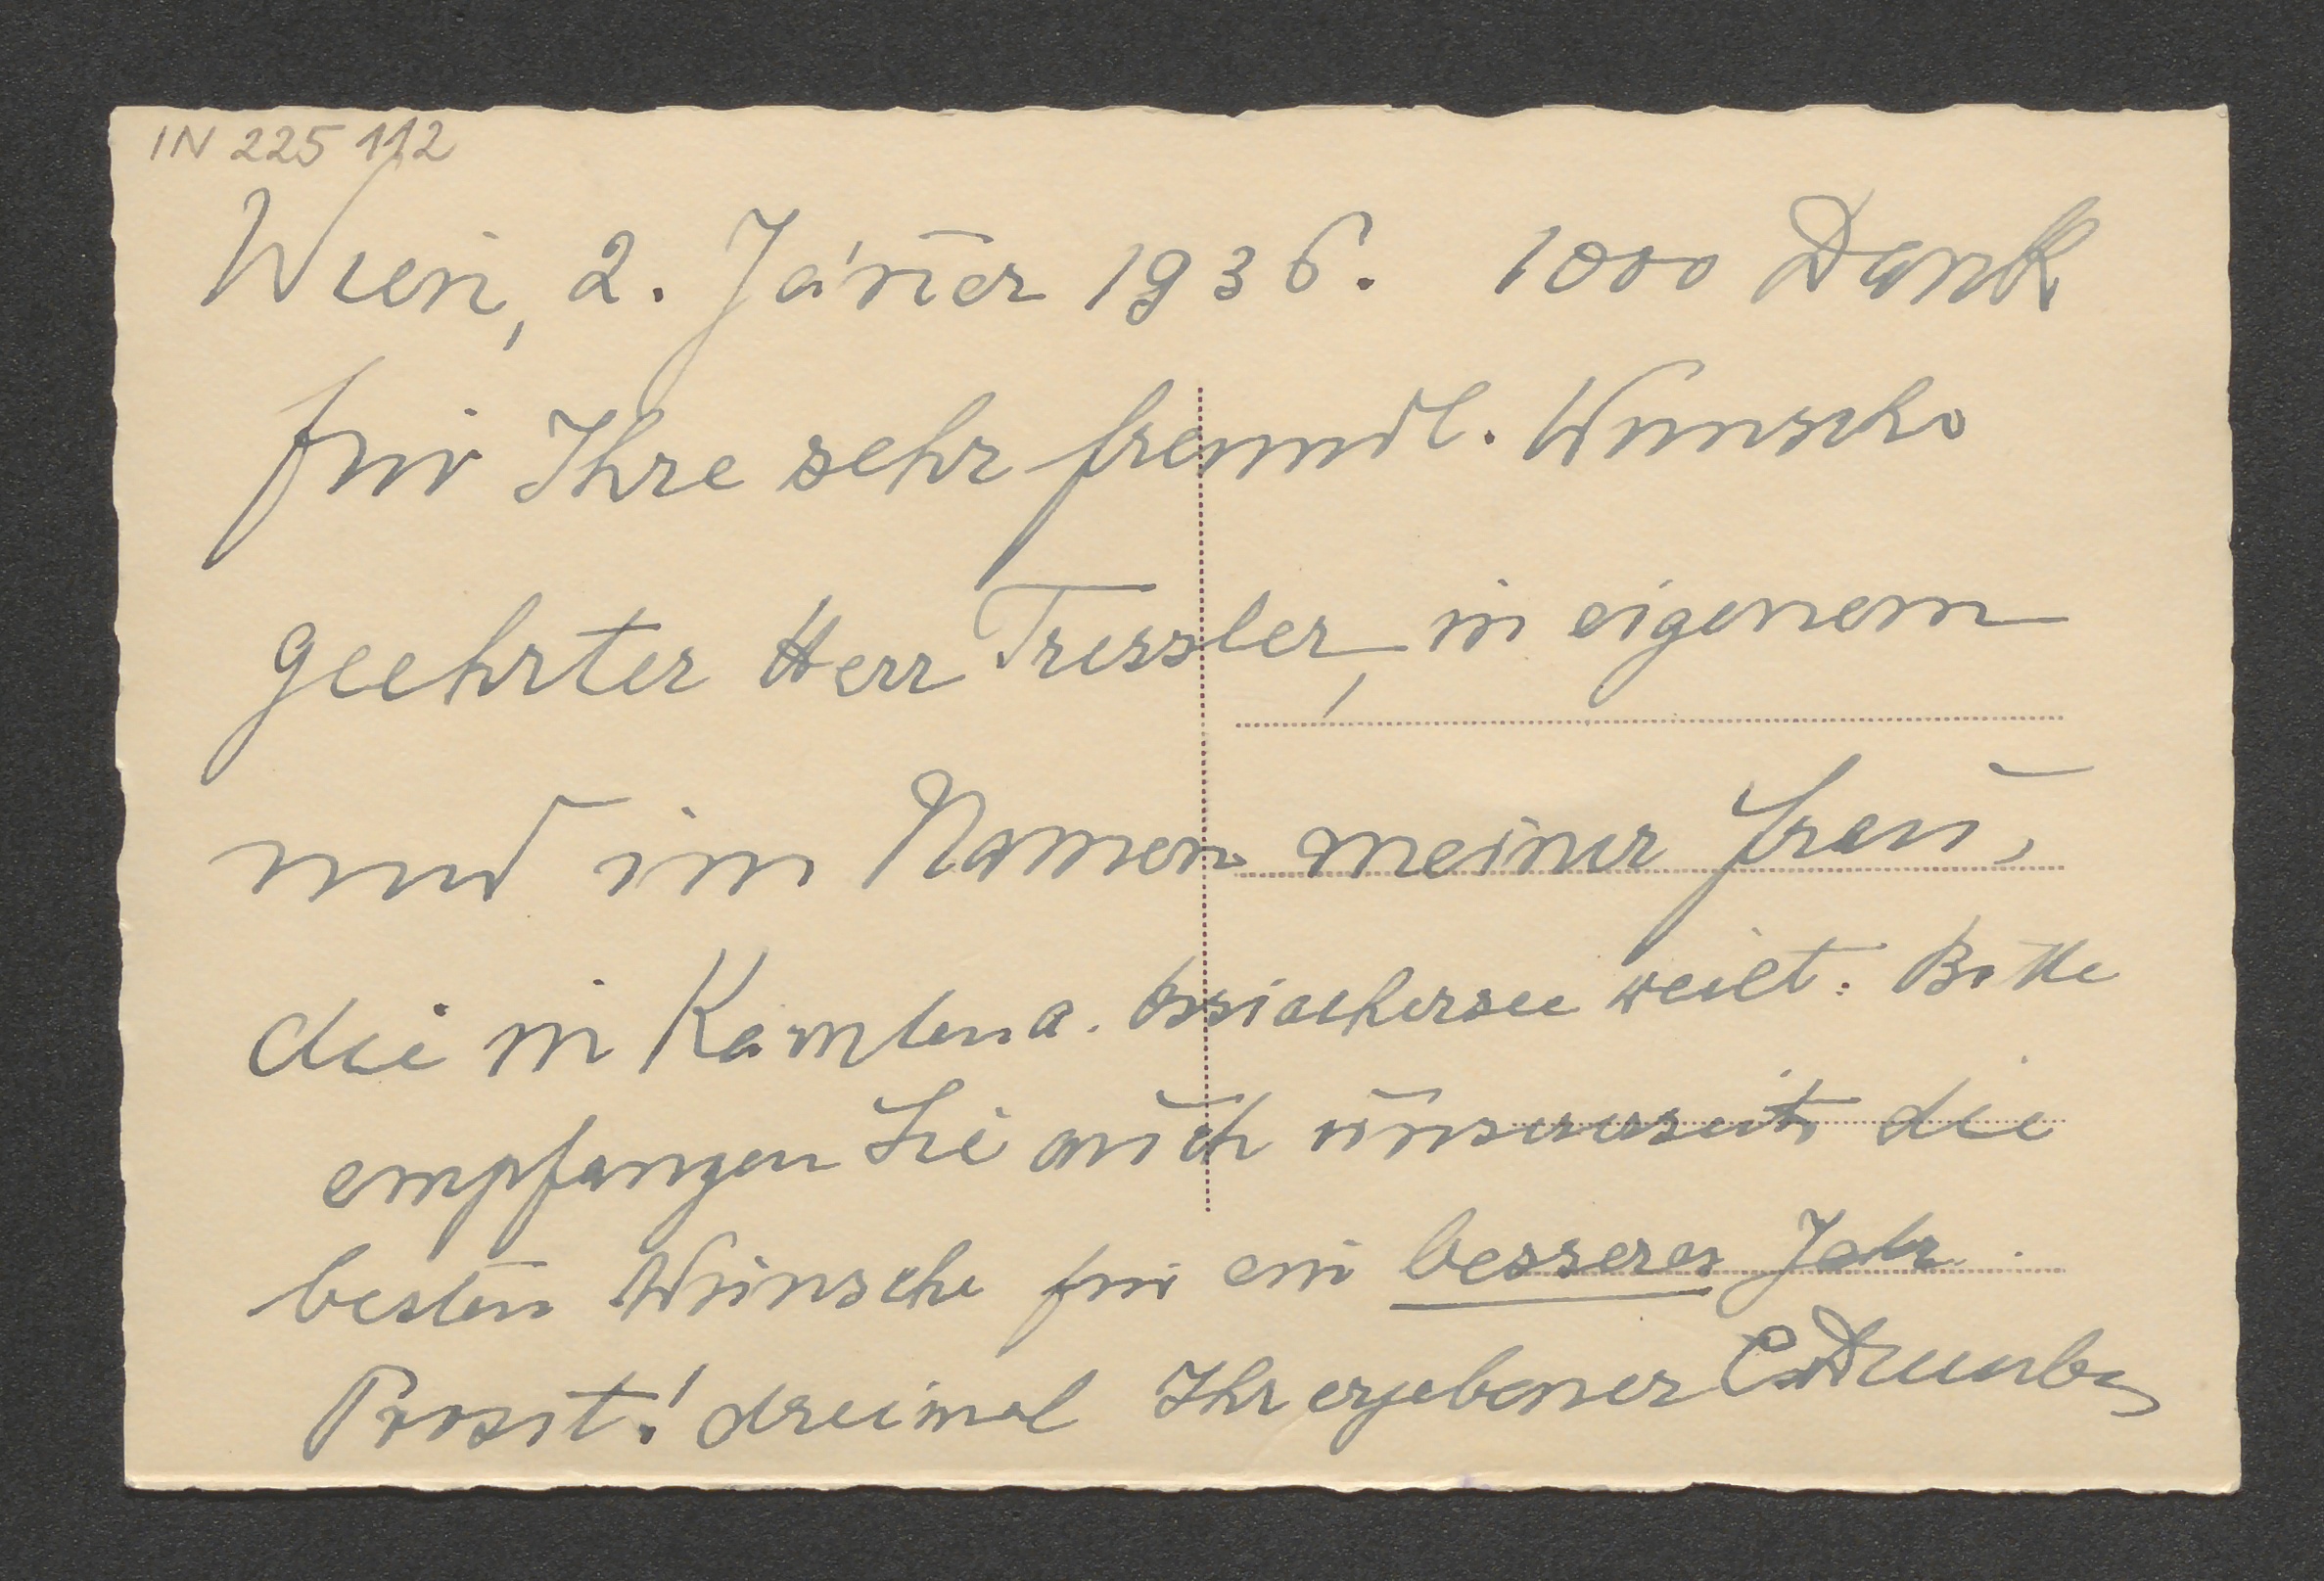 IN 225 112
Wien, 2. Jänner 1936. 1000 Dank
für Ihre sehr freundl. Wünsche
geehrter Herr Tressler, in eigenem
und im Namen meiner Frau,
die in Kärnten a. Ossiachersee weilt. Bitte
empfangen Sie auch unsererseits die
besten Wünsche für ein besseres Jahr.
Prosit! dreimal Ihr ergebener